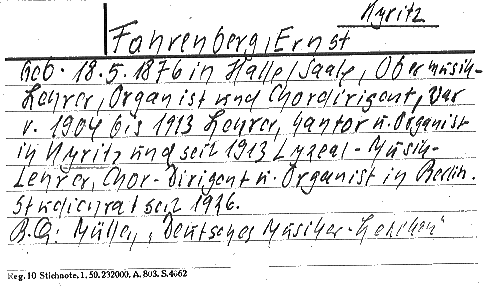 Kyritz
Fahrenberg, Ernst
Geb. 18.5.1876 in Halle/Saale, Obermusik-
Lehrer, Organist und Chordirigent, war
v. 1904 bis 1913 Lehrer, Kantor u. Organist
in Kyritz und seit 1913 Lyzeal-Musik-
Lehrer, Chor-Dirigent u. Organist in Berlin.
Studienrat seit 1926.
B.Q: Müller, "Deutsches Musiker-Lexikon"
Reg. 10 Stichnote, 1, 50. 232000. A. 803. S.4662